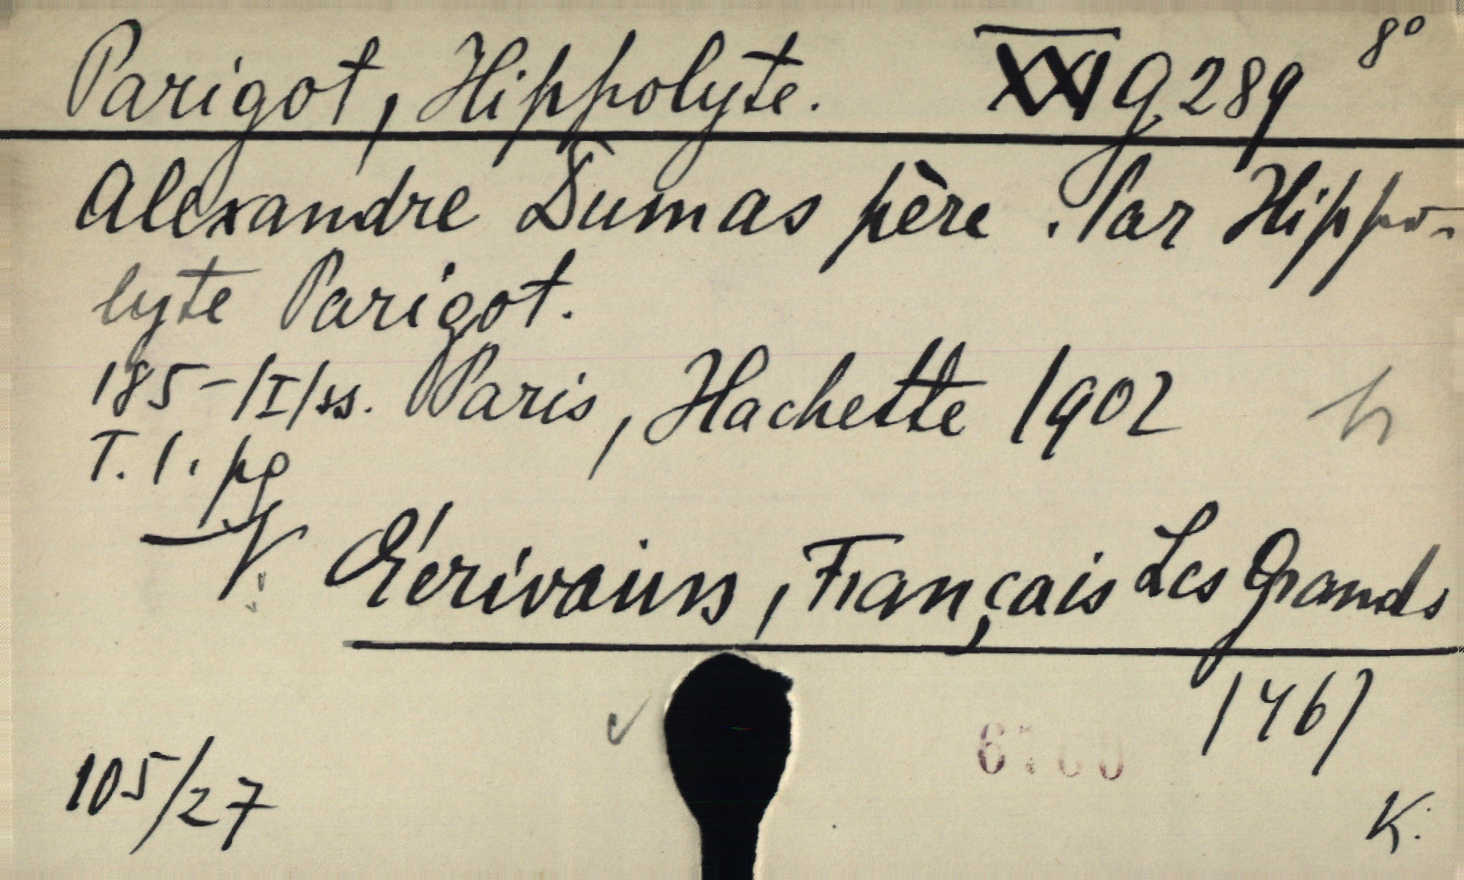 Parigot, Hippolyte. XXI G 289 8°
Alexandre Dumas père. Par Hippo-
lyte Parigot.
185-/I/ss. Paris, Hachette 1902
T. 1. pg
Écrivains, Français Les Grands
1467
105/27
K.